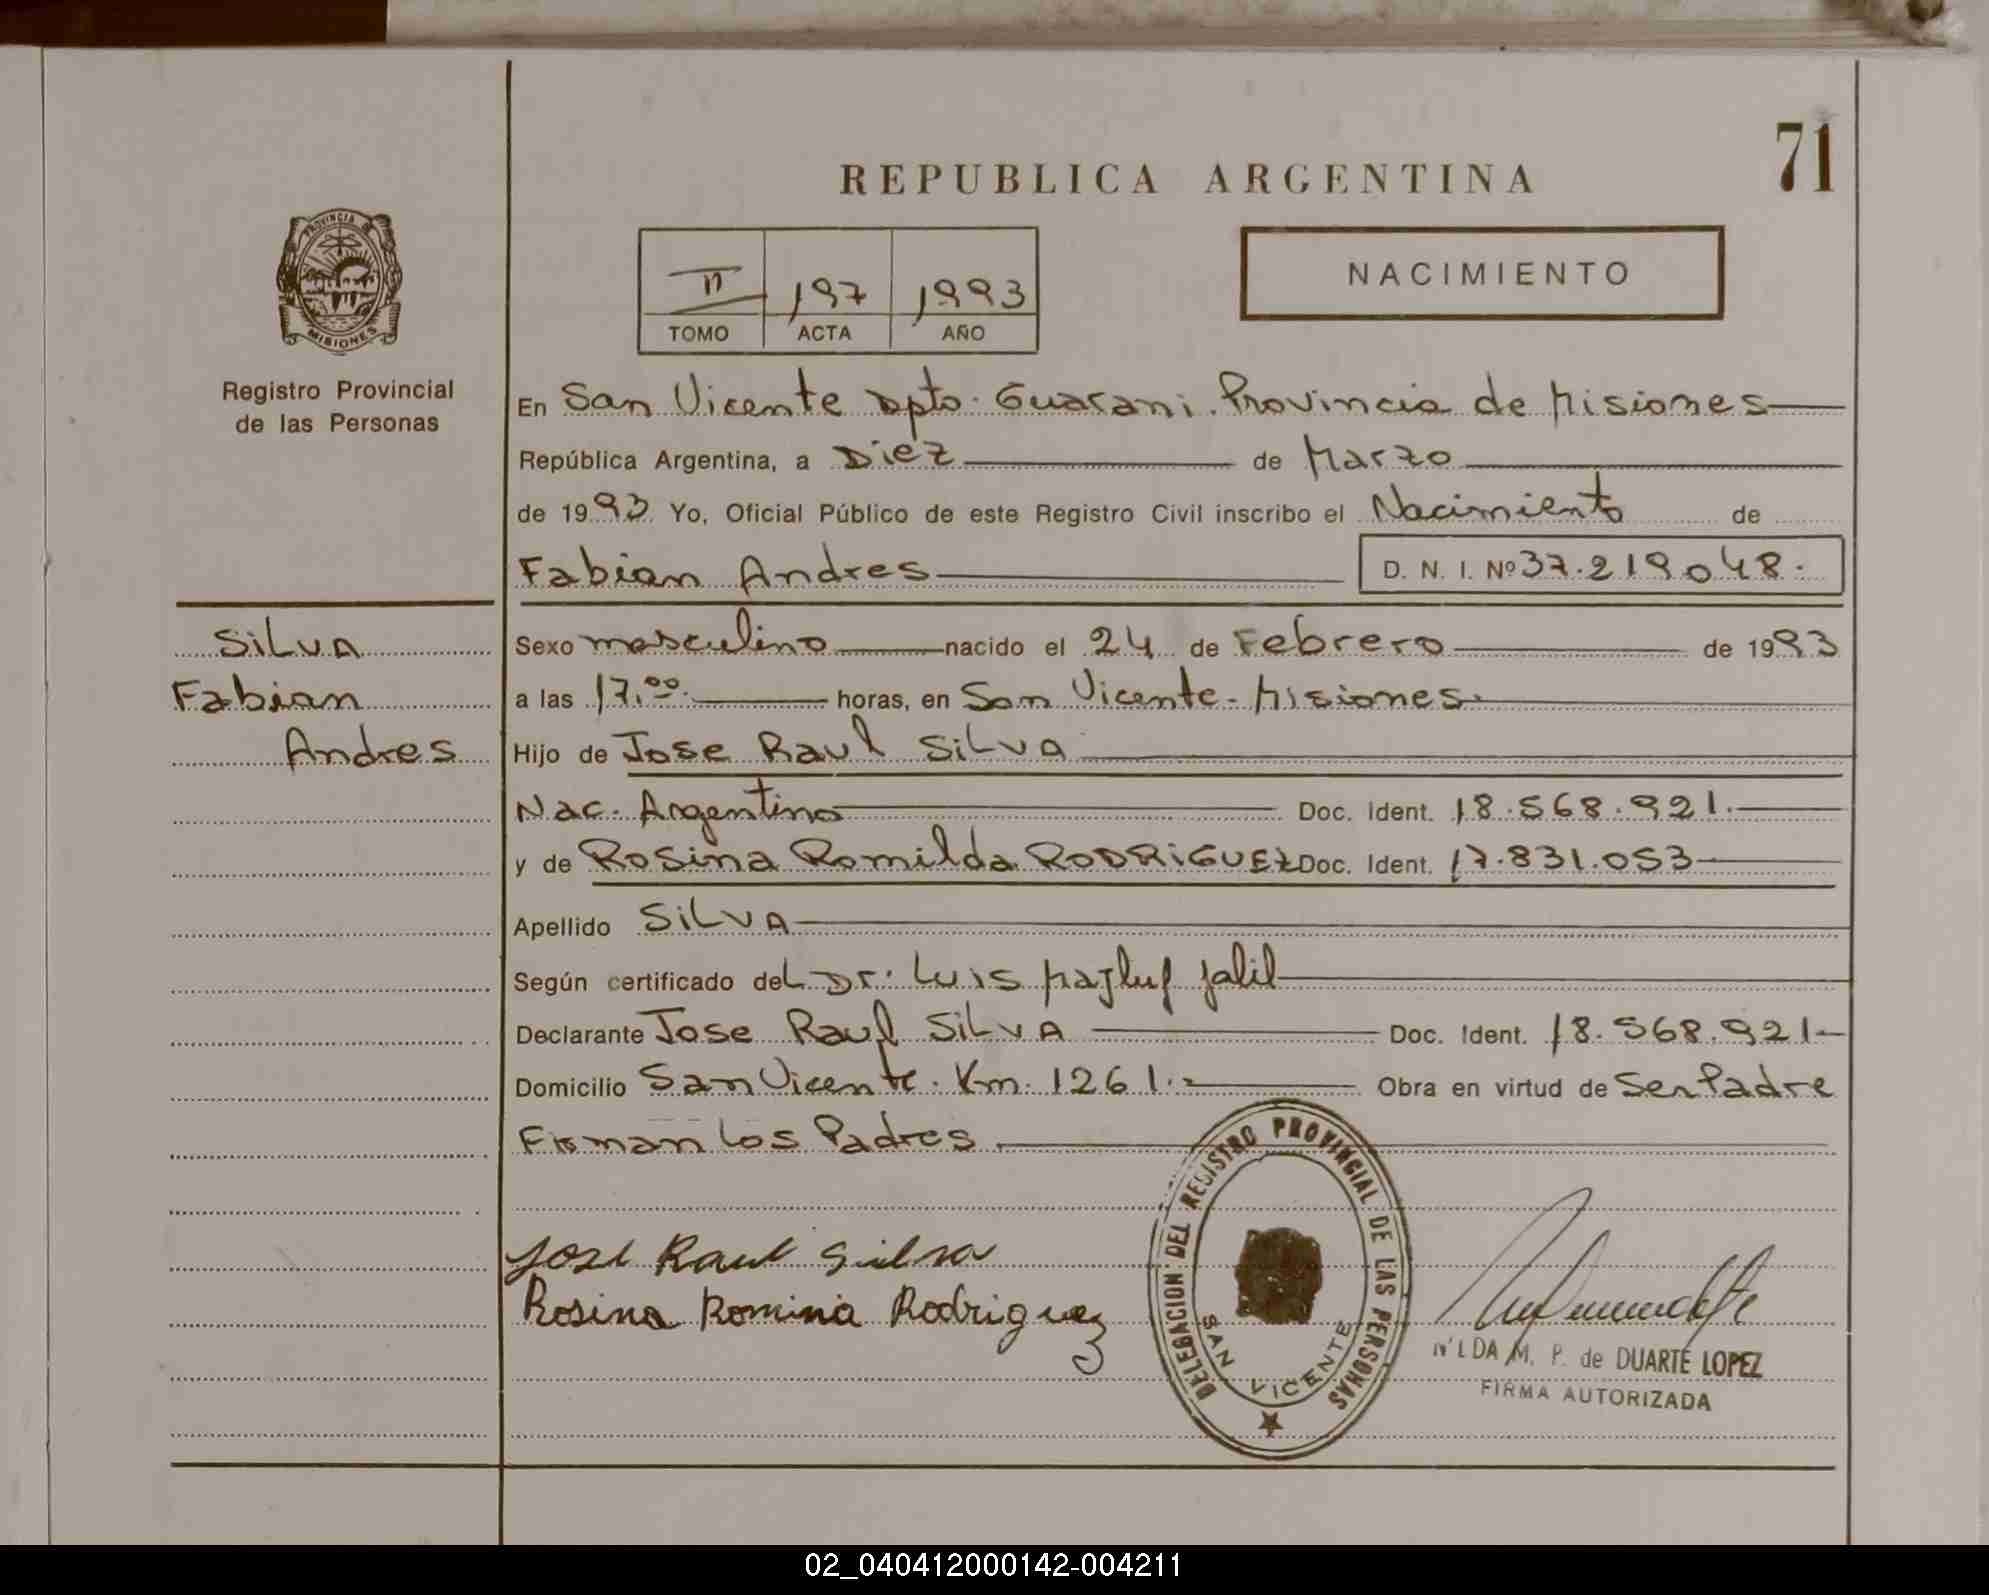 71
REPUBLICA ARGENTINA
PROVINCIA DE
MISIONES
Registro Provincial
de las Personas
II 197 1993
TOMO ACTA AÑO
NACIMIENTO
En San Vicente Dpto. Guarani. Provincia de Misiones
República Argentina, a Diez de Marzo
de 1993 Yo, Oficial Público de este Registro Civil inscribo el Nacimiento de
Fabian Andres D. N. I. Nº 37.219048.
SILVA
Fabian
Andres
Sexo masculino nacido el 24 de Febrero de 1993
a las 17.00 horas, en San Vicente - Misiones
Hijo de Jose Raul SILVA
Nac. Argentino Doc. Ident. 18.568.921.
y de Rosina Romilda RODRIGUEZ Doc. Ident. 17.831.053
Apellido SILVA
Según certificado del Dr. Luis Majluf Jalil
Declarante Jose Raul SILVA Doc. Ident. 18.568.921
Domicilio San Vicente. Km. 1261. Obra en virtud de Ser Padre
Firman los Padres
Jose Raul Silva
Rosina Romina Rodriguez
DELEGACION DEL REGISTRO PROVINCIAL DE LAS PERSONAS
SAN VICENTE
NILDA M. P. de DUARTE LOPEZ
FIRMA AUTORIZADA
02_040412000142-004211